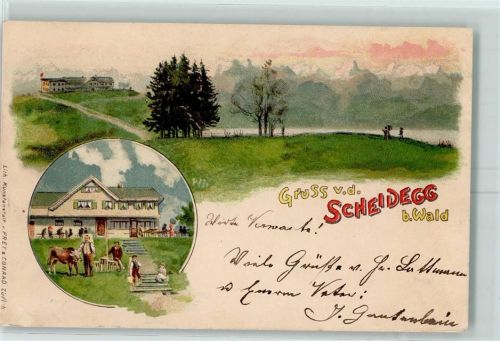 Gruss v.d.
SCHEIDEGG
b. Wald
Werte Kewaste!
Viele Grüße v. Hr. Lattmann
u Euerm Vater!
J. Gantenbein
Lith. Kunstanstalt v. FREY & CONRAD Zürich